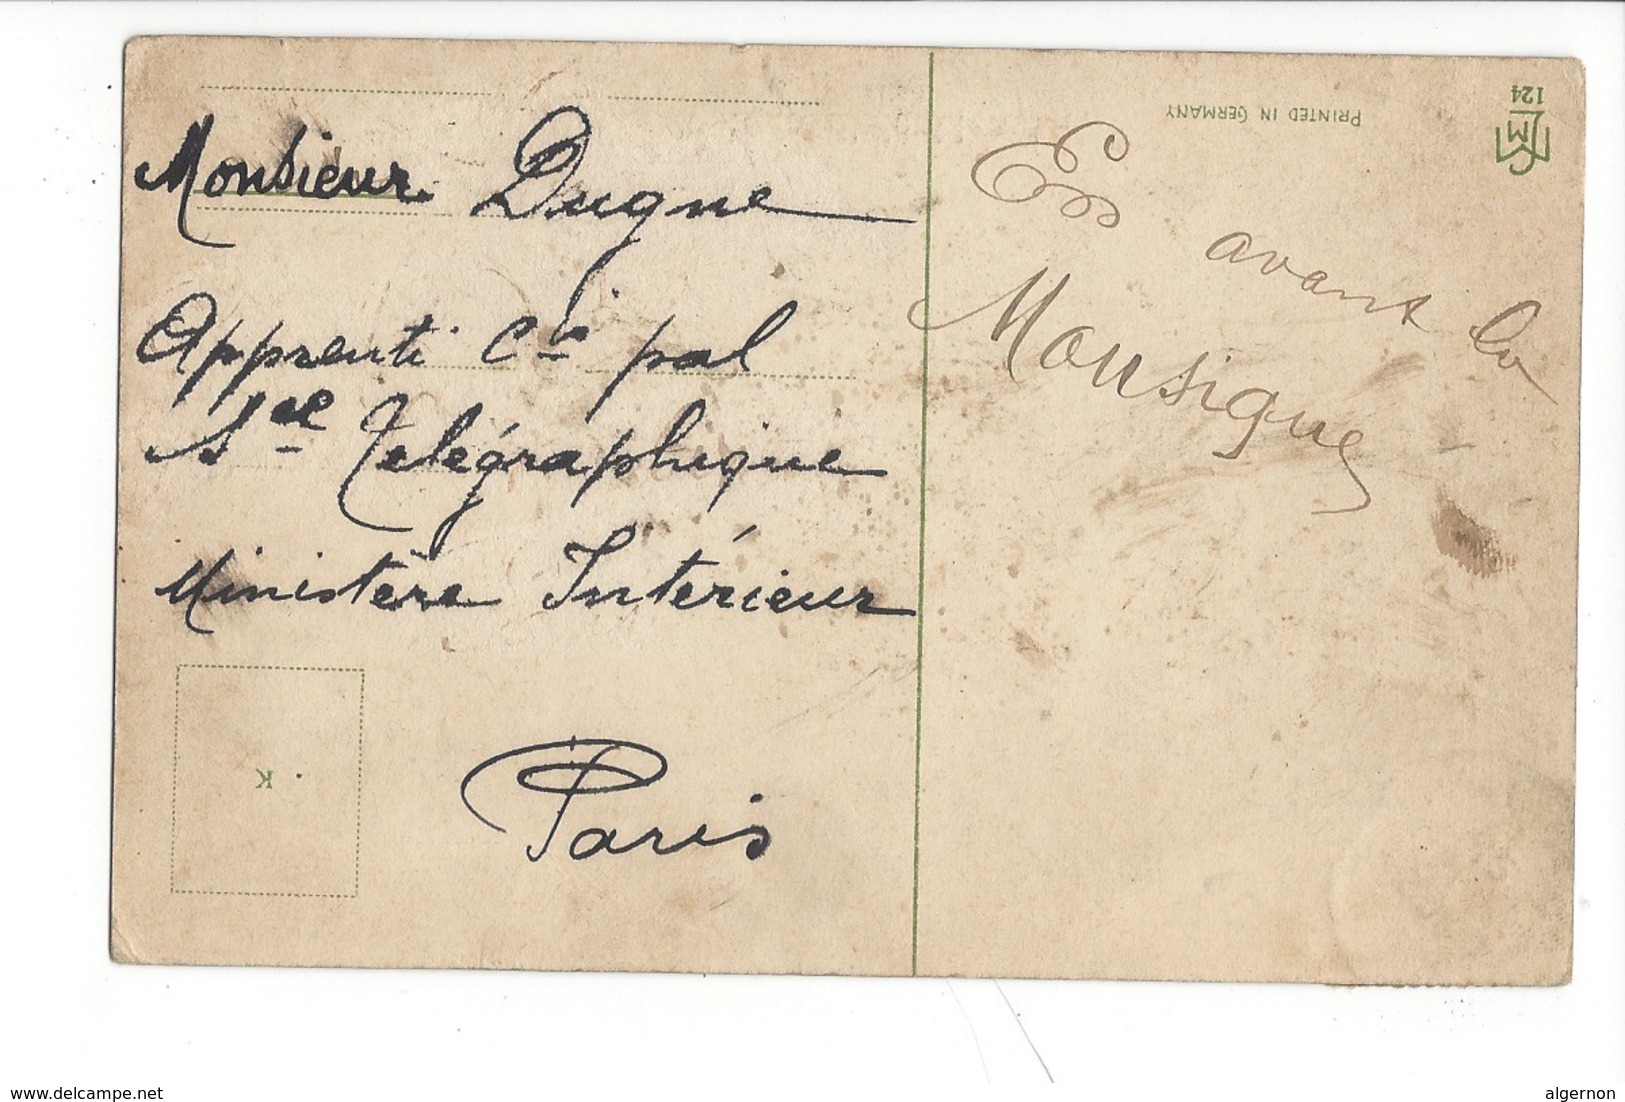 Monsieur Dugne
Apprenti Cis pal
Sce Telégraphique
Ministère Intérieur
Paris
K
En avant la
Monsigue
PRINTED IN GERMANY
124
M
www.delcampe.net
algernon